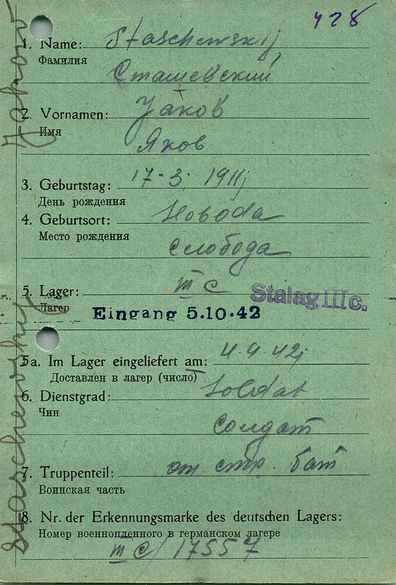 428
1. Name: Staschewskij
Фамилия
Сташевский
2. Vornamen: Jakob
Имя
Яков
3. Geburtstag: 17-3. 1911j
День рождения
4. Geburtsort: Sloboda
Место рождения
слобода
5. Lager: III C Stalag III c.
Лагер
Eingang 5.10.42
5a. Im Lager eingeliefert am: 4.9.42j
Доставлен в лагер (число)
6. Dienstgrad: Soldat
Чин
солдат
7. Truppenteil: от. стр. бат
Воинская часть
8. Nr. der Erkennungsmarke des deutschen Lagers:
Номер военнопленного в германском лагере
III C/ 17557
Staschewskij Jakow